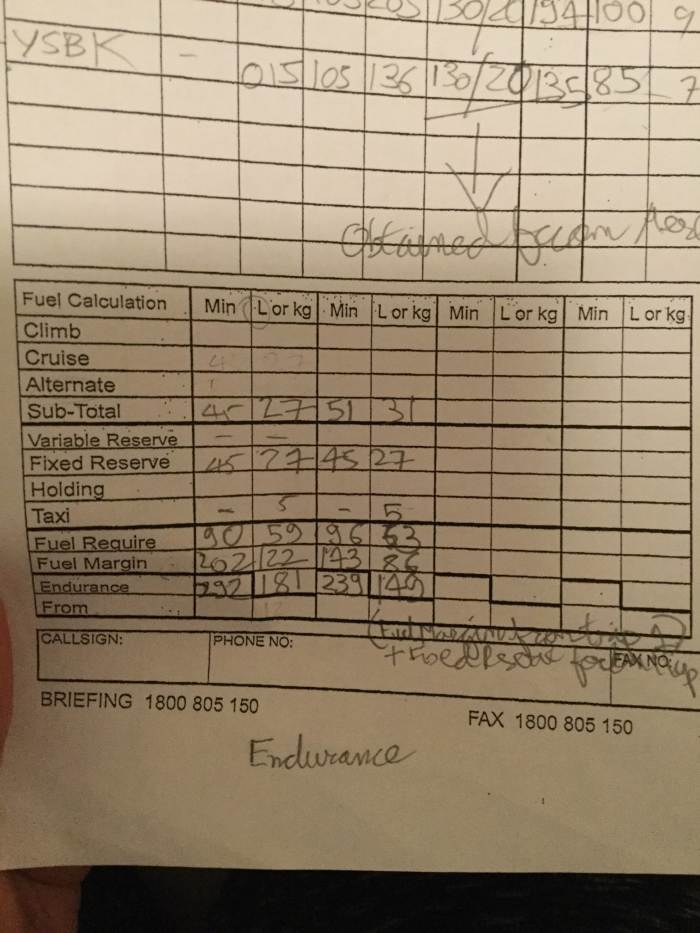 130/20 194 100 9
YSBK - 015 105 136 130/20 135 85 7
Obtained from
Fuel Calculation Min L or kg Min L or kg Min L or kg Min L or kg
Climb
Cruise
Alternate
Sub-Total 45 27 51 31
Variable Reserve - -
Fixed Reserve 45 27 45 27
Holding
Taxi - 5 - 5
Fuel Require 90 59 96 63
Fuel Margin 202 122 143 86
Endurance 292 181 239 149
From
(Fuel Margin from trip 1)
+ Fixed for
CALLSIGN: PHONE NO: FAX NO:
BRIEFING 1800 805 150
FAX 1800 805 150
Endurance